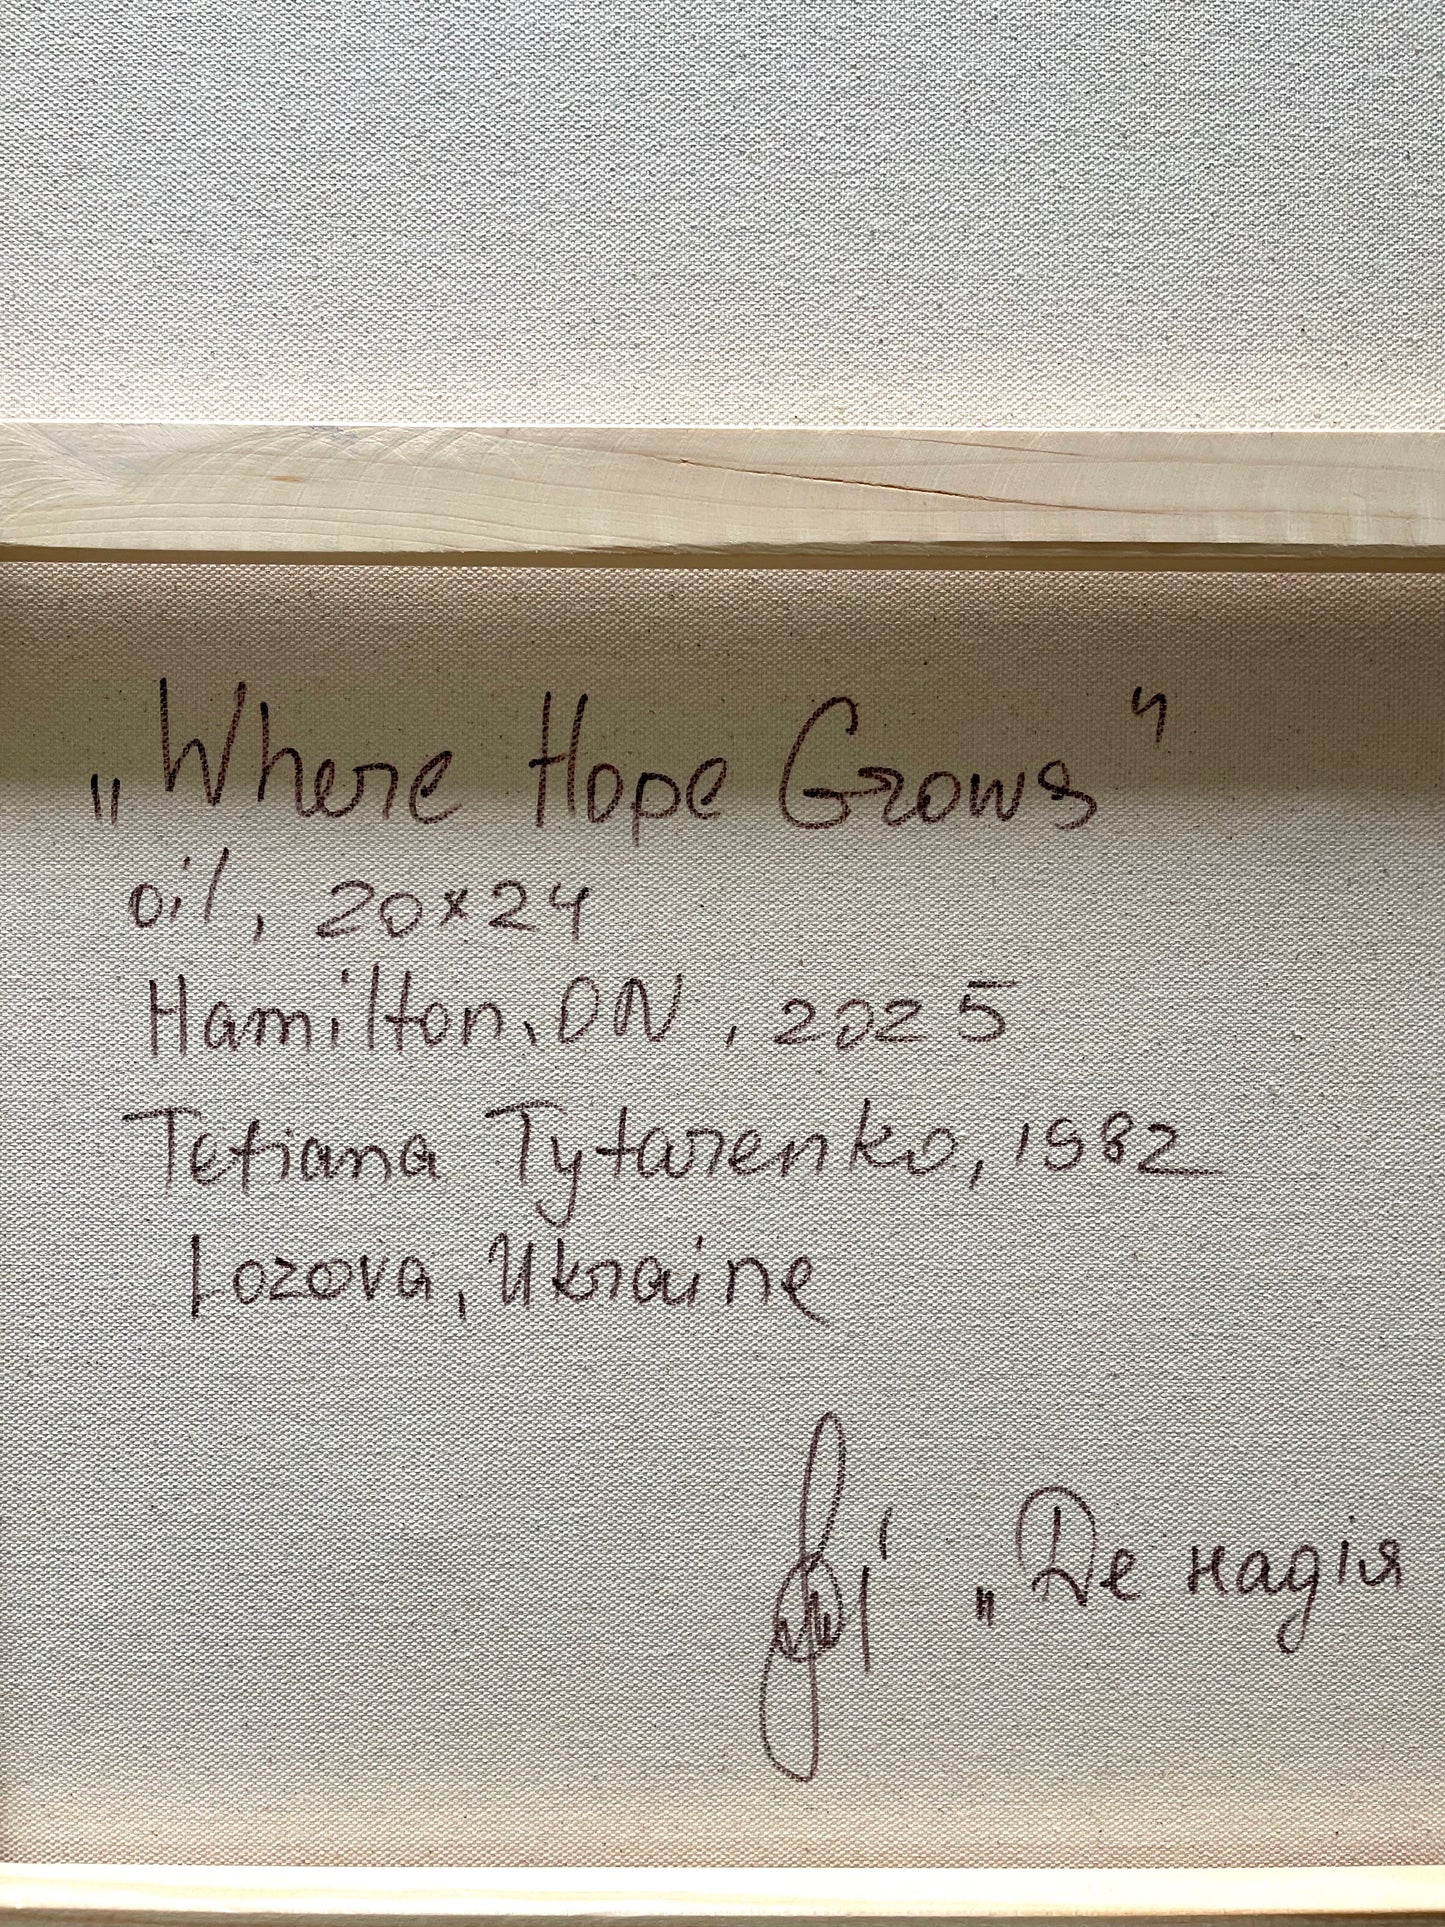 „Where Hope Grows"
oil, 20x24
Hamilton, ON, 2025
Tetiana Tytarenko, 1982
Lozova, Ukraine
„Де надія